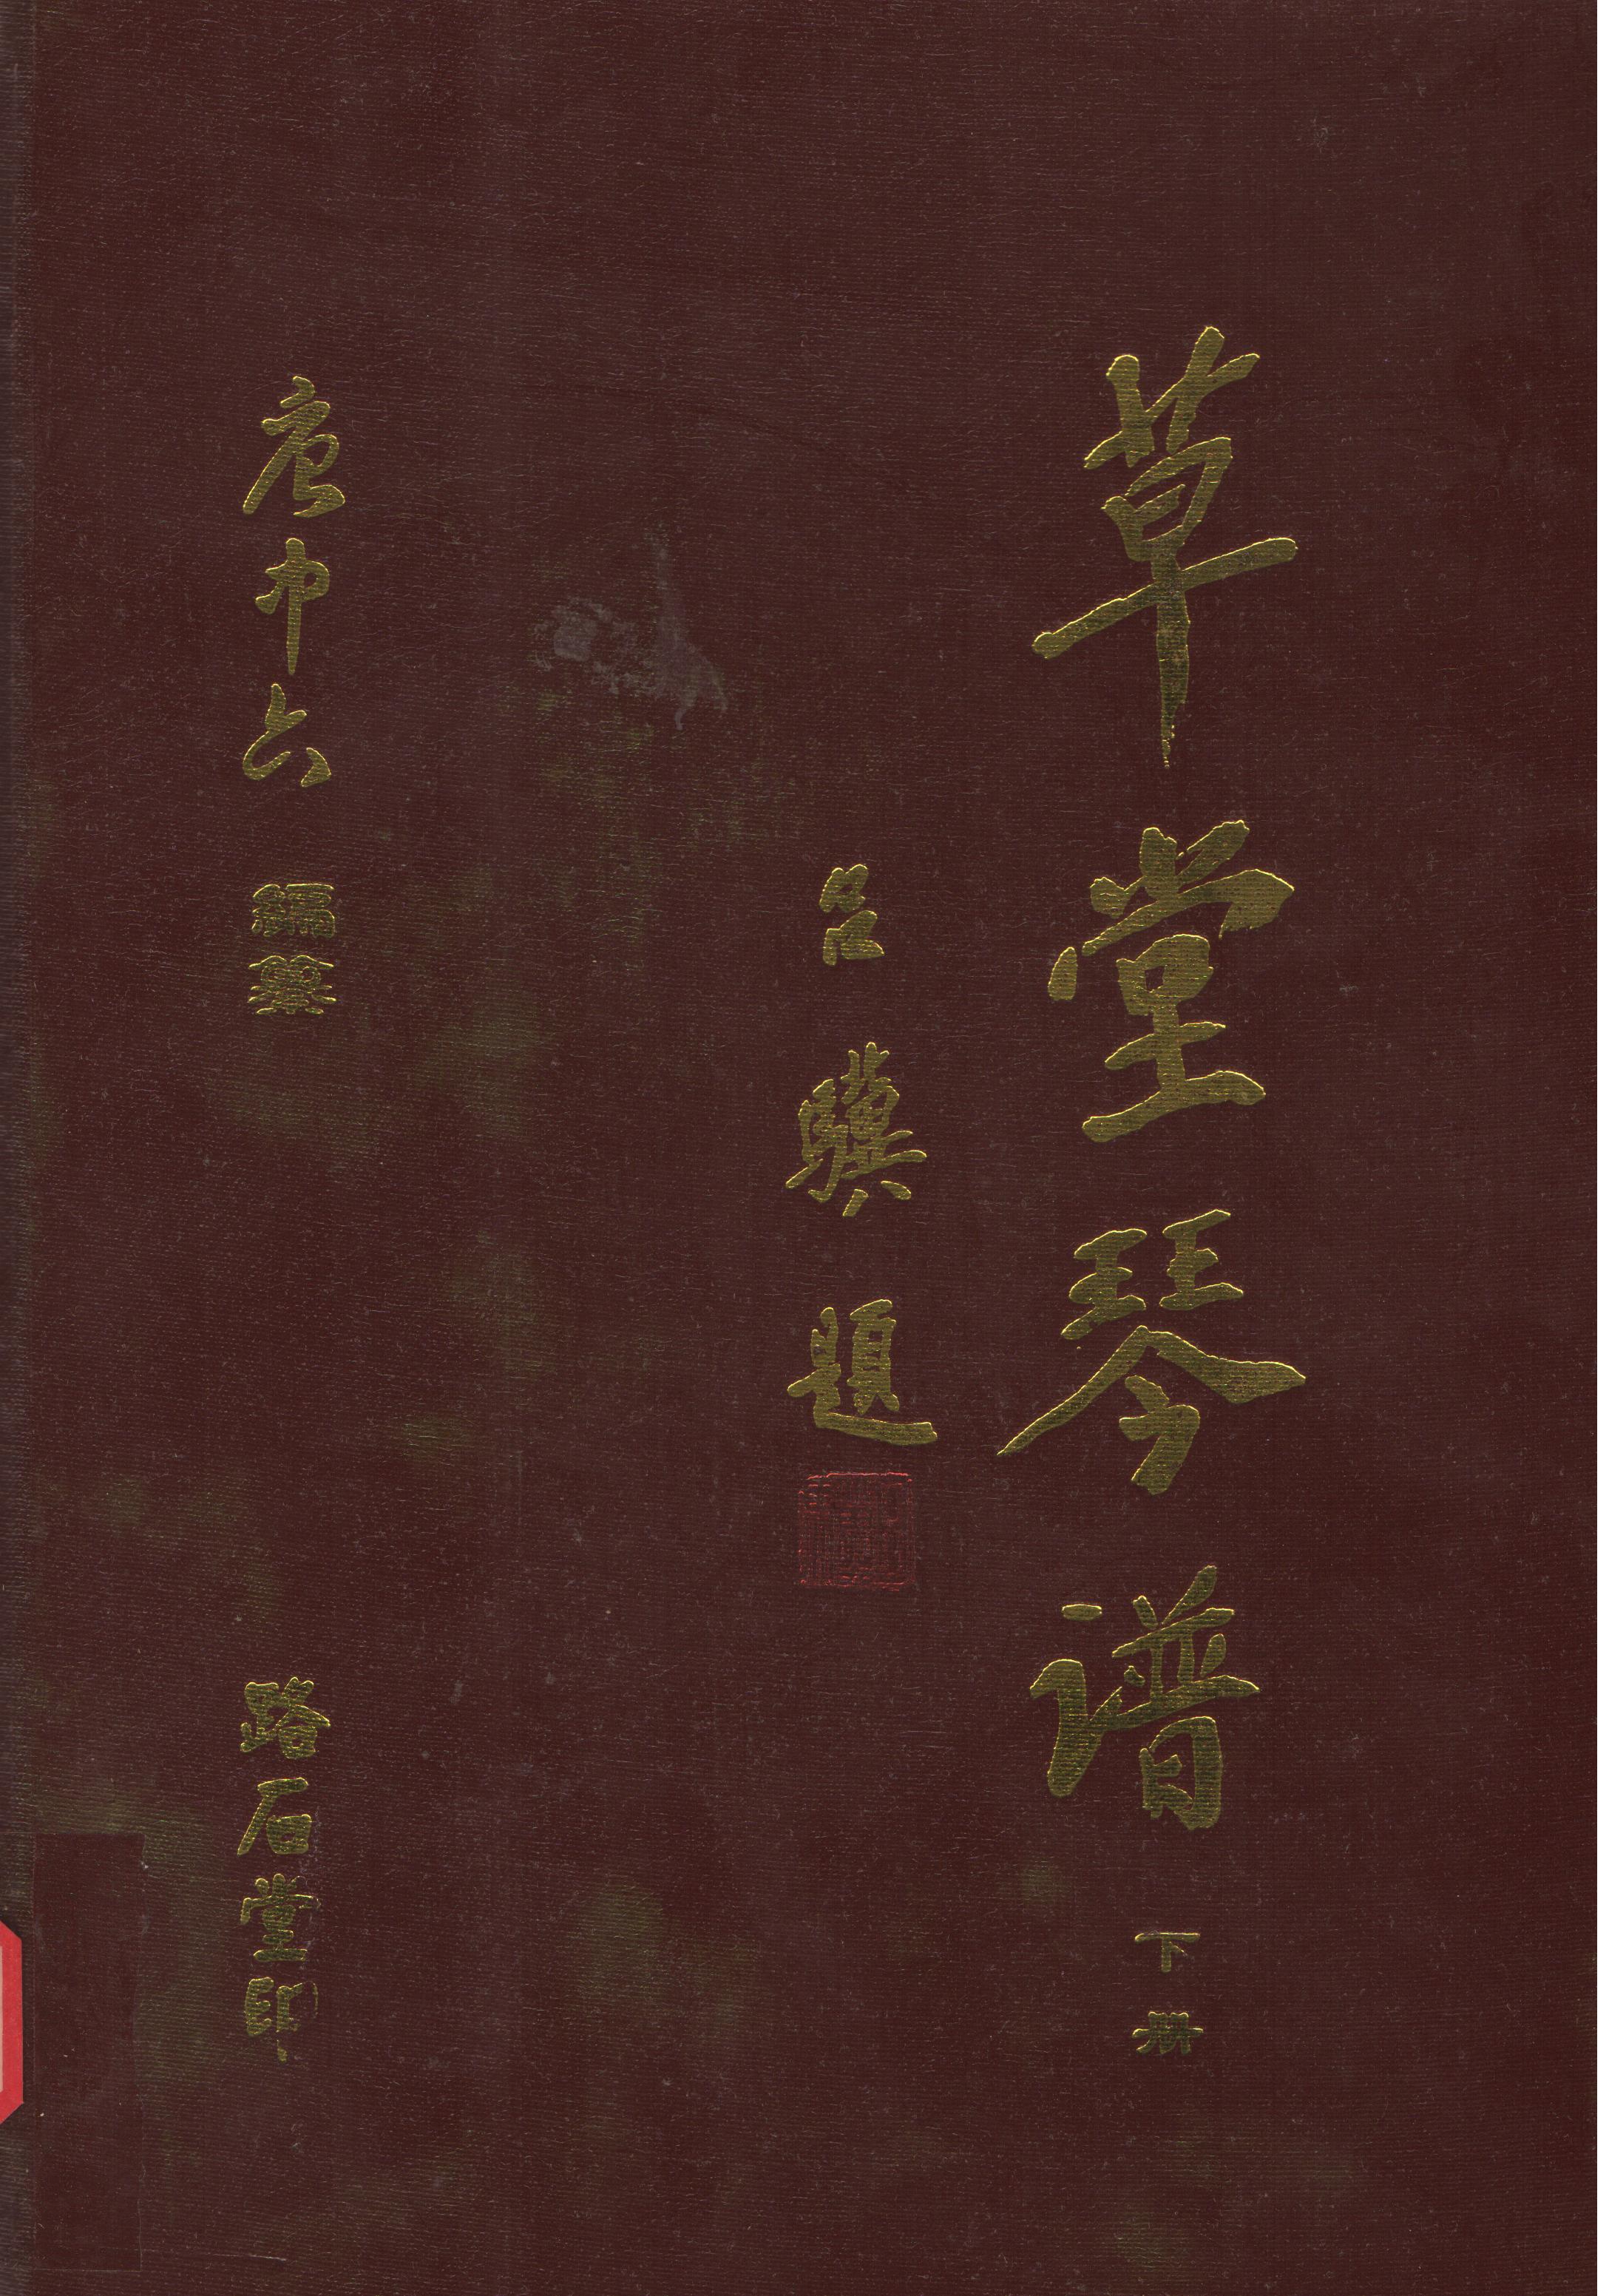 草堂琴谱 下册
吕骥题
唐中六 編纂
路石堂印